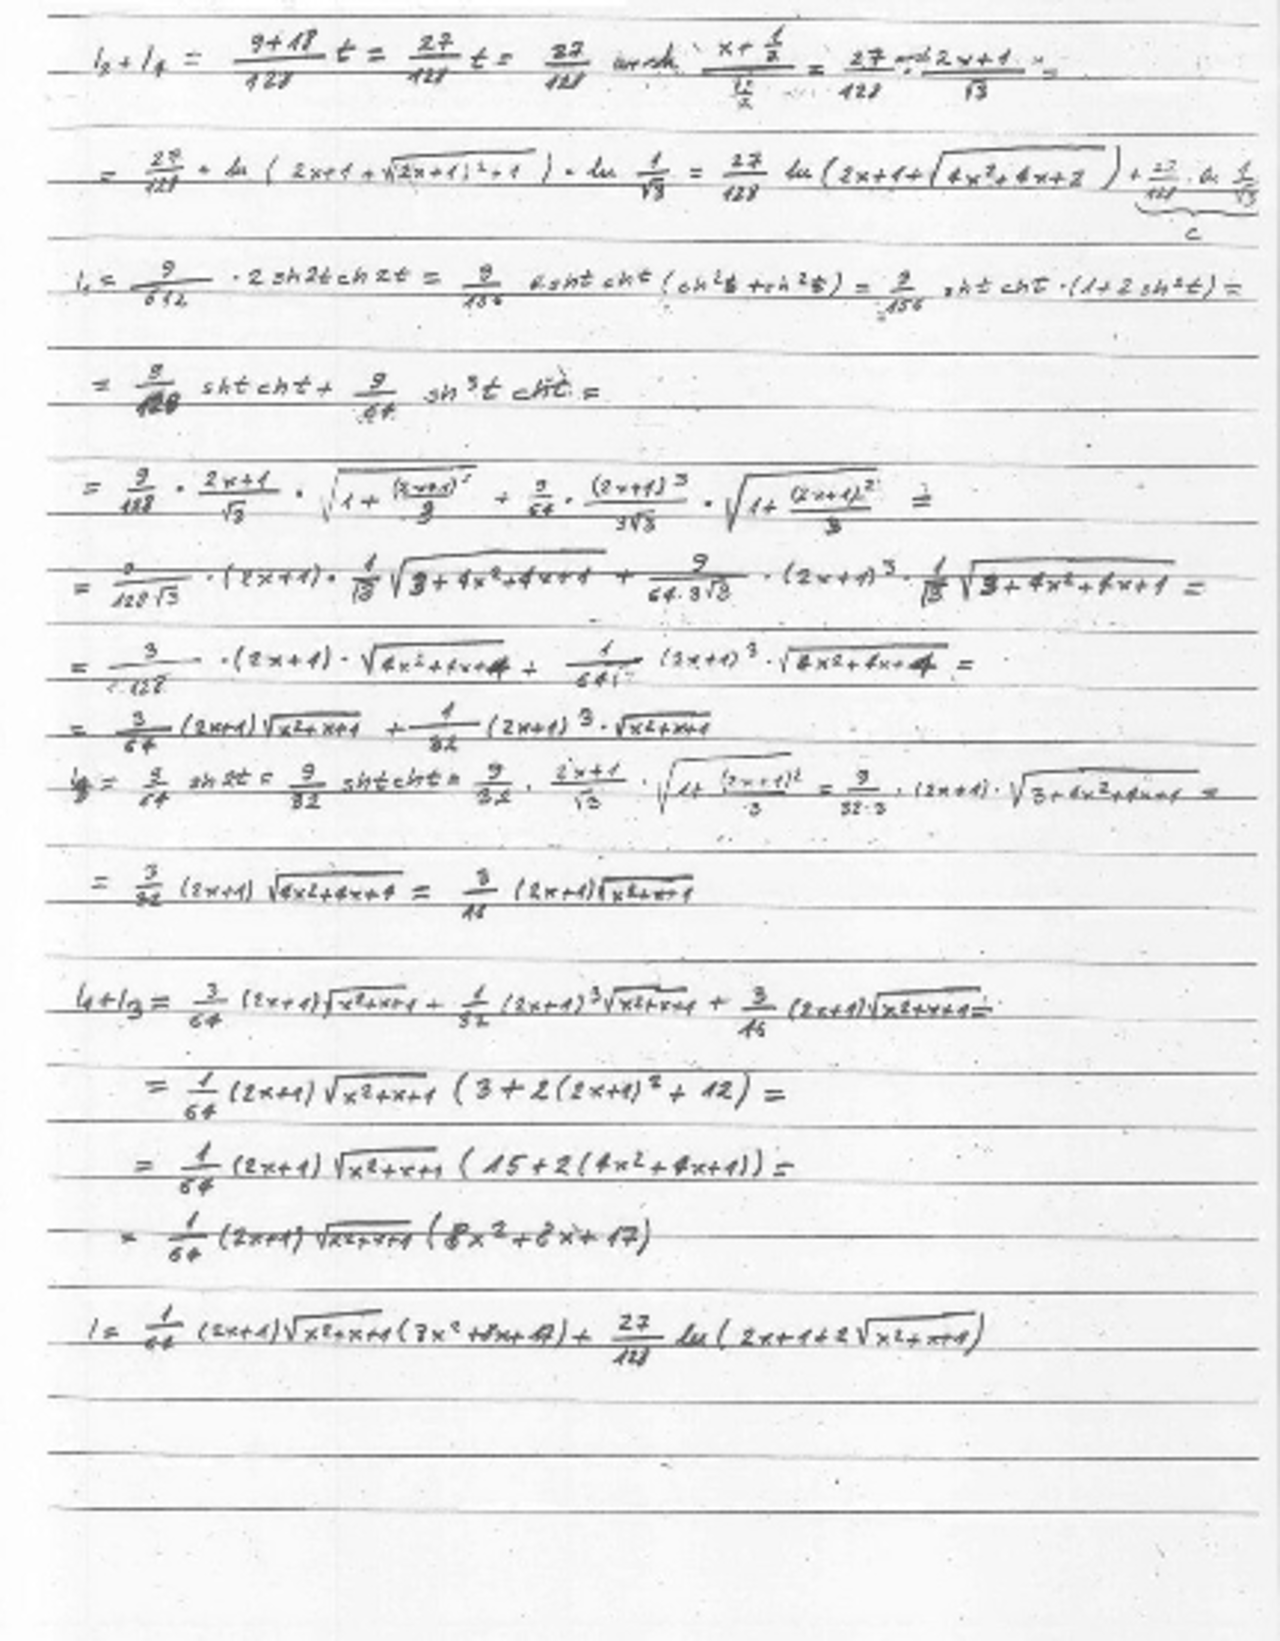 I₂+I₄ = (9+18)/128 t = 27/128 t = 27/128 arsh (x+1/2)/(√3/2) = 27/128 · (2x+1)/√3 =
= 27/128 · ln(2x+1+√((2x+1)²+1)) · ln 1/√3 = 27/128 ln(2x+1+√(4x²+4x+2)) + 27/128 · ln 1/√3
C
I₁ = 9/512 · 2 sh2t ch2t = 9/156 sht cht (ch²t + sh²t) = 9/156 sht cht · (1+2sh²t) =
= 9/128 sht cht + 9/64 sh³t cht =
= 9/128 · (2x+1)/√3 · √(1+(2x+1)²/3) + 9/64 · (2x+1)³/3√3 · √(1+(2x+1)²/3) =
= 9/128√3 · (2x+1) · 1/√3 √(3+4x²+4x+1) + 9/64·3√3 · (2x+1)³ · 1/√3 √(3+4x²+4x+1) =
= 3/128 · (2x+1) · √(4x²+4x+4) + 1/64 (2x+1)³ · √(4x²+4x+4) =
= 3/64 (2x+1)√(x²+x+1) + 1/32 (2x+1)³ · √(x²+x+1)
I₃ = 9/64 sh2t = 9/32 sht cht = 9/32 · (2x+1)/√3 · √(1+(2x+1)²/3) = 9/32·3 · (2x+1) · √(3+4x²+4x+1) =
= 3/32 (2x+1) √(4x²+4x+4) = 3/16 (2x+1)√(x²+x+1)
I₁+I₃ = 3/64 (2x+1)√(x²+x+1) + 1/32 (2x+1)³√(x²+x+1) + 3/16 (2x+1)√(x²+x+1) =
= 1/64 (2x+1) √(x²+x+1) (3+2(2x+1)²+12) =
= 1/64 (2x+1) √(x²+x+1) (15+2(4x²+4x+1)) =
= 1/64 (2x+1) √(x²+x+1) (8x²+8x+17)
I = 1/64 (2x+1)√(x²+x+1) (8x²+8x+17) + 27/128 ln(2x+1+2√(x²+x+1))